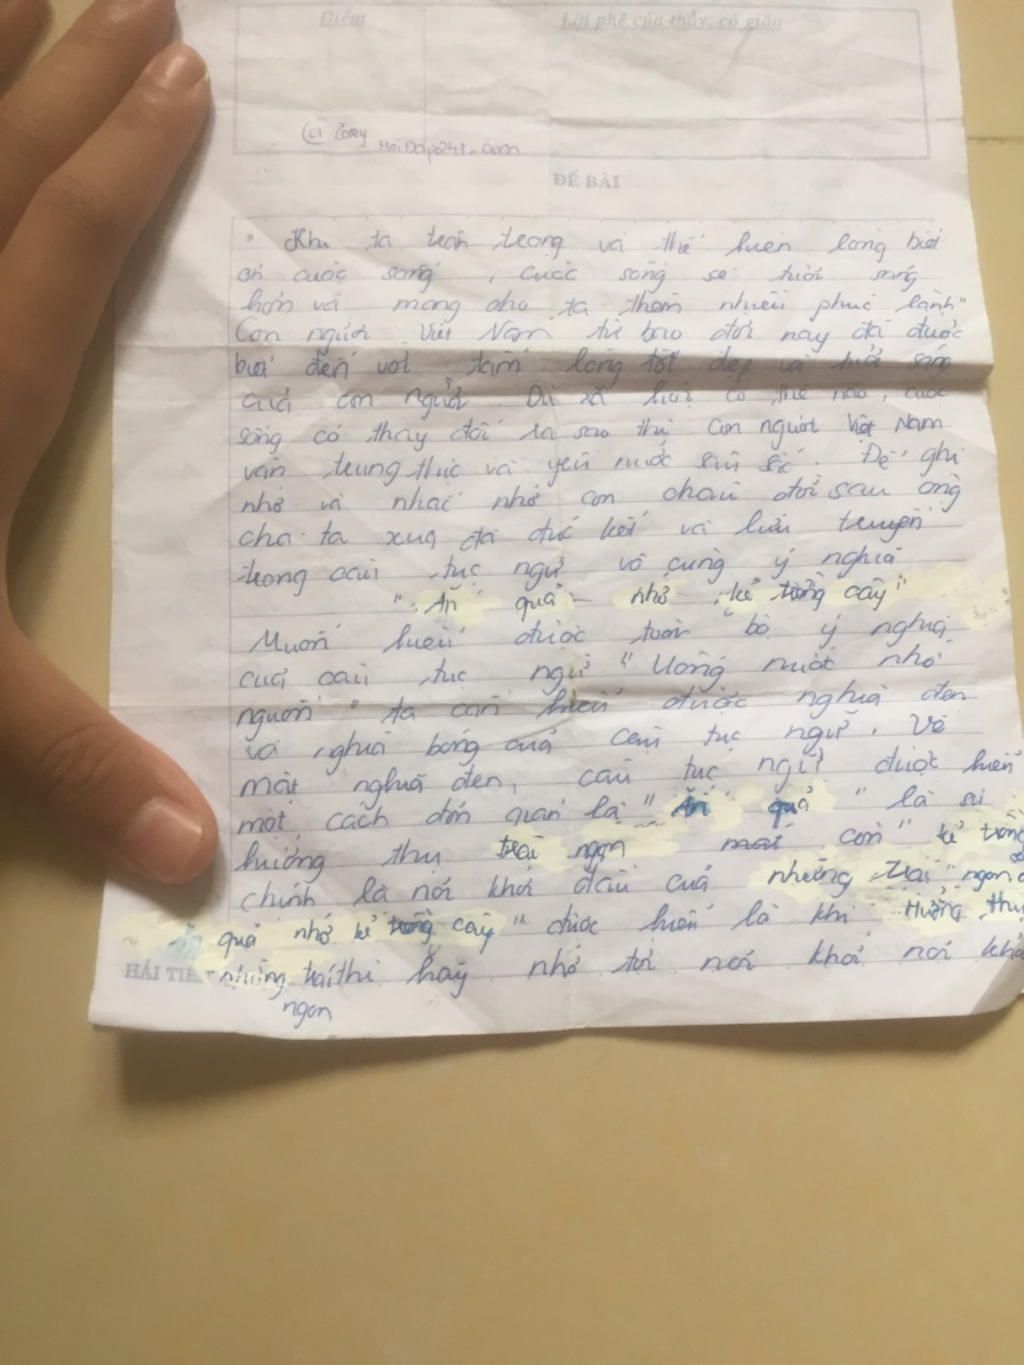 Điểm Lời phê của thầy, cô giáo
Zory
HoiDap247.com
ĐỀ BÀI
" Khi ta trân trọng và thể hiện lòng biết
ơn cuộc sống, cuộc sống sẽ tươi sáng
hơn và mang cho ta thêm nhiều phúc lành"
Con người Việt Nam từ bao đời nay đã được
biết đến với tấm lòng tốt đẹp và tươi sáng
của con người. Dù xã hội có thế nào, cuộc
sống có thay đổi ra sao thì con người Việt Nam
vẫn trung thực và yêu nước sâu sắc. Để ghi
nhớ và nhắc nhở con cháu đời sau ông
cha ta xưa đã đúc kết và lưu truyền
trong câu tục ngữ vô cùng ý nghĩa
" Ăn quả - nhớ kẻ trồng cây"
Muốn hiểu được toàn bộ ý nghĩa
của câu tục ngữ " Uống nước nhớ
nguồn " ta cần hiểu được nghĩa đen
và nghĩa bóng của câu tục ngữ. Về
mặt nghĩa đen, câu tục ngữ được hiểu
một cách đơn giản là " Ăn quả " là sự
hưởng thụ trái ngon mát còn " kẻ trồng
chính là nơi khởi đầu của những trái ngon
quả nhớ kẻ trồng cây " được hiểu là khi Hưởng thụ
HẢI TIẾ những trái thì hãy nhớ tới nơi khởi nơi
ngon